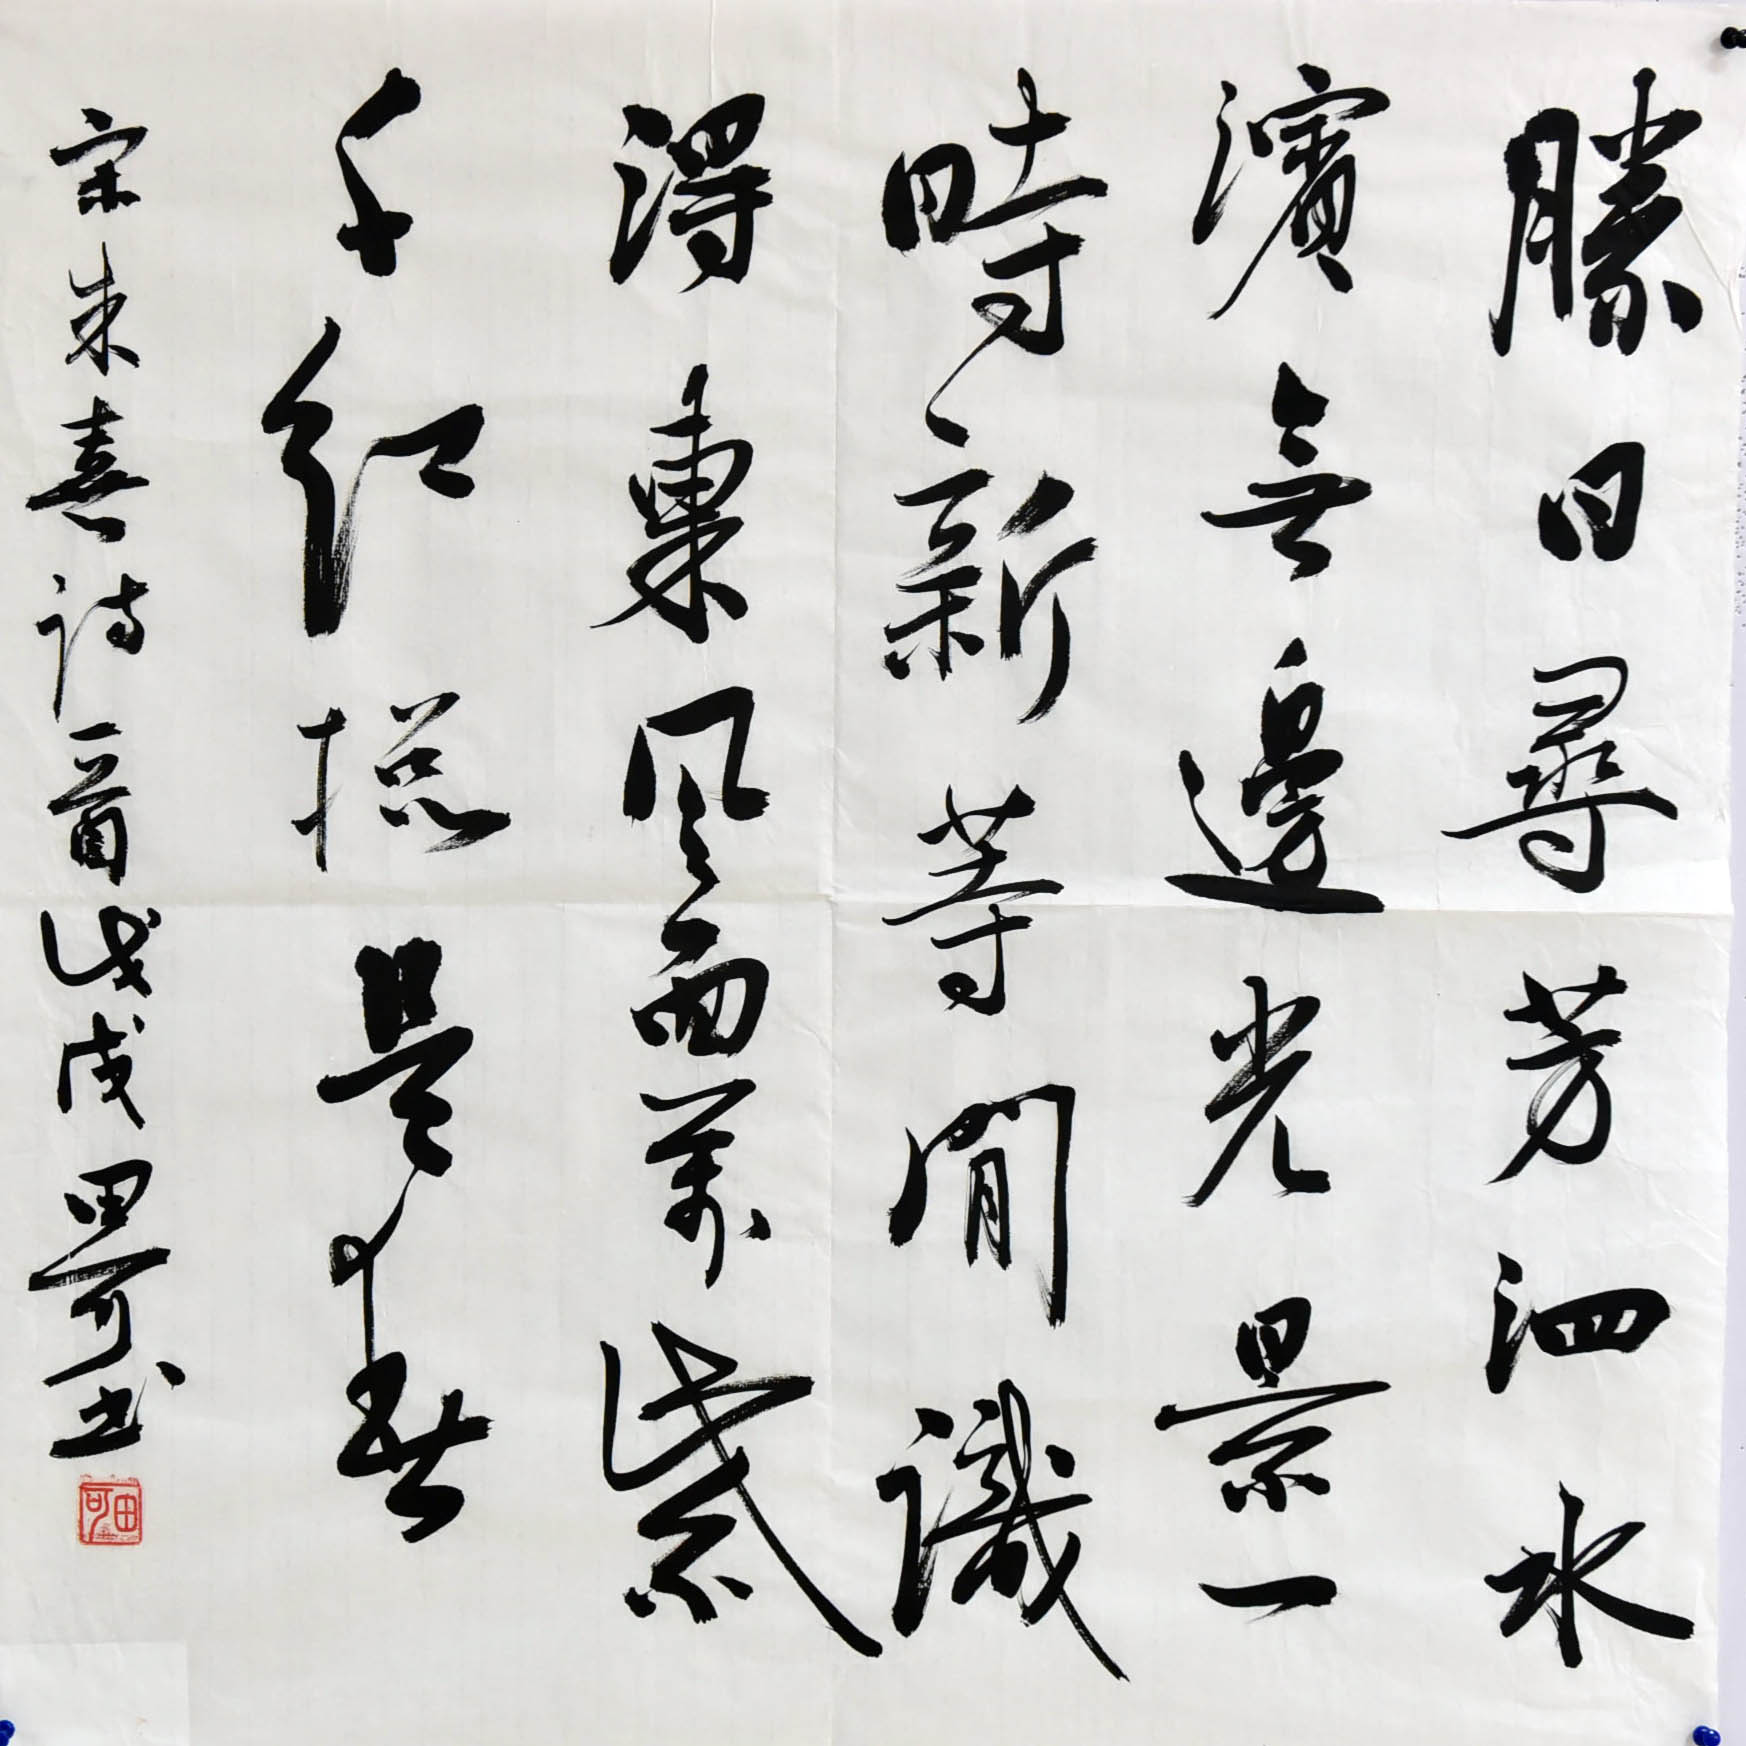 勝日尋芳泗水
濱無邊光景一
時新等閒識
得東風面萬紫
千紅捴是春
宋朱熹詩一首戊戌田可书
田可